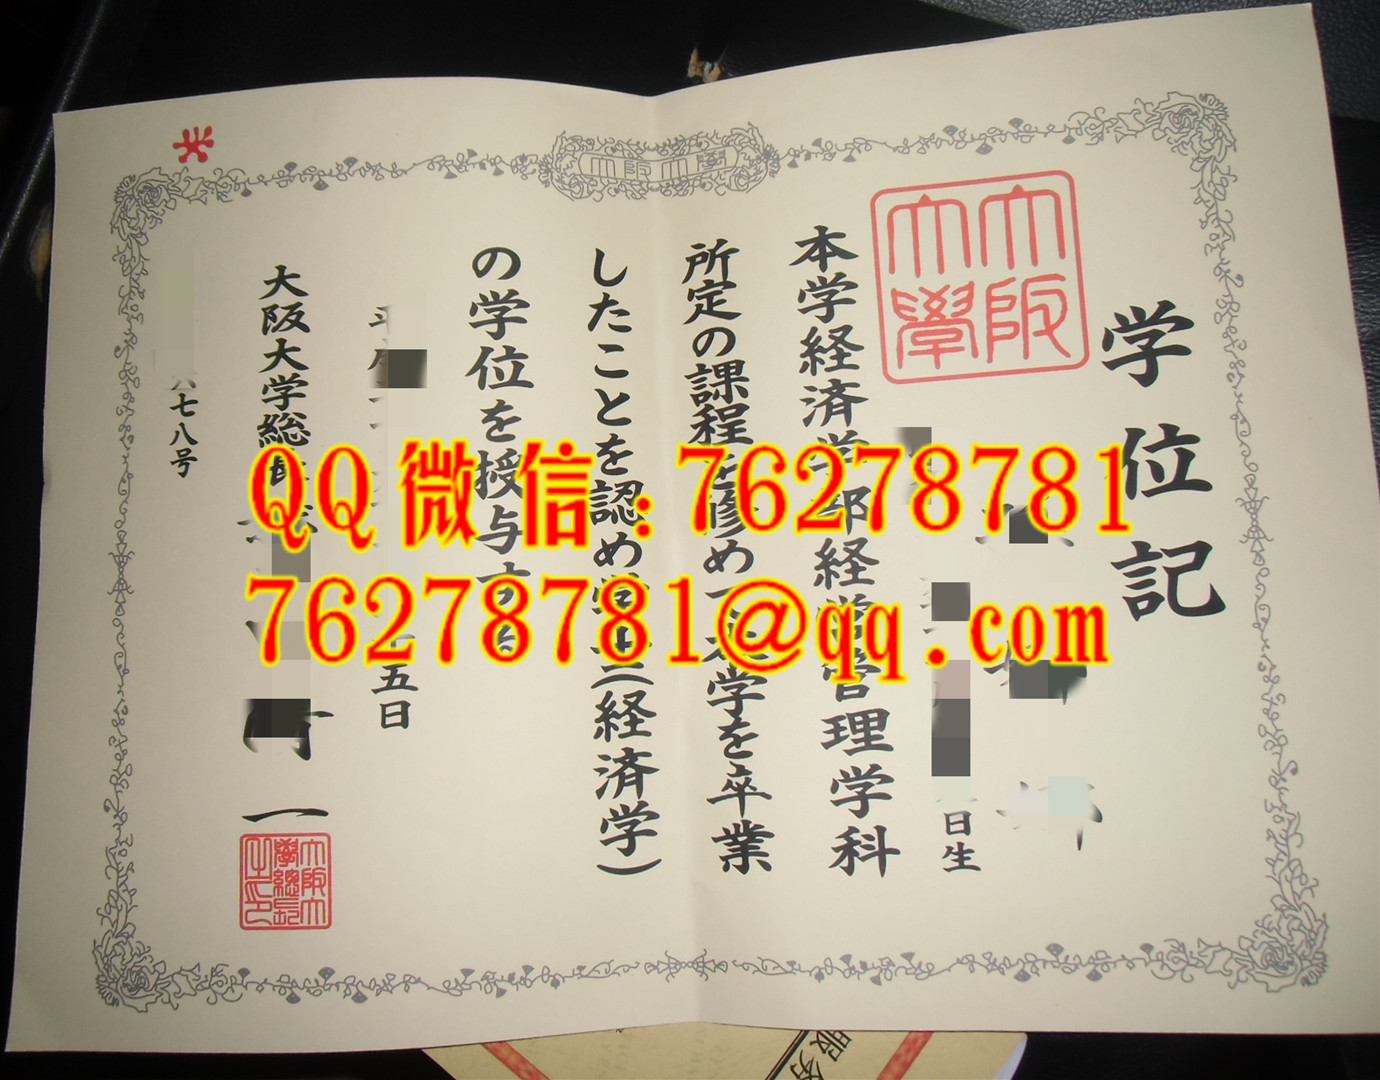 学位記
大阪大學
日生
本学経済学部経済経営管理学科
所定の課程を修めて本学を卒業
したことを認め学士(経済学)
の学位を授与する
五日
大阪大学総長
一
大阪大學總長之印
八七八号
QQ微信:76278781
76278781@qq.com